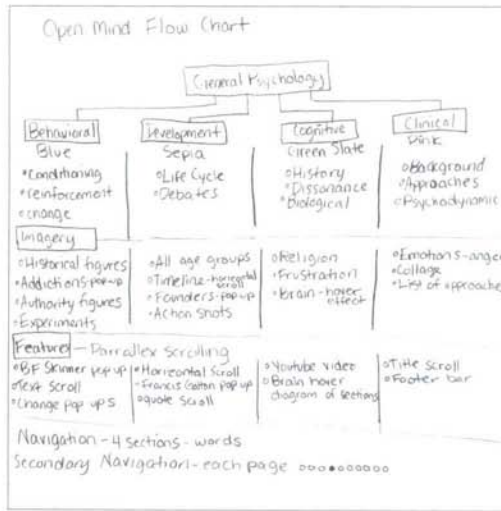 Open Mind Flow Chart
General Psychology
Behavioral
Blue
Conditioning
reinforcement
change
Development
Sepia
Life Cycle
Debates
Cognitive
Green Slate
History
Dissonance
Biological
Clinical
Pink
Background
Approaches
Psychodynamic
Imagery
Historical figures
Addictions-pop up
Authority figures
Experiments
All age groups
Timeline-horizontal
scroll
Founders-pop up
Action shots
Religion
Frustration
Brain-hover
effect
Emotions-anger
Collage
List of approaches
Feature - Parrallex scrolling
BF Skinner pop up
Text scroll
Change pop ups
Horizontal scroll
Francis Galton pop up
quote scroll
Youtube video
Brain hover
diagram of sections
Title scroll
Footer bar
Navigation - 4 sections - words
Secondary Navigation - each page